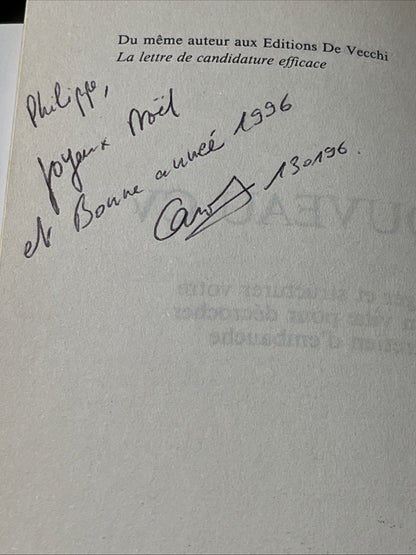 Du même auteur aux Editions De Vecchi
La lettre de candidature efficace
Philippe,
Joyeux Noël
et Bonne année 1996
130196.